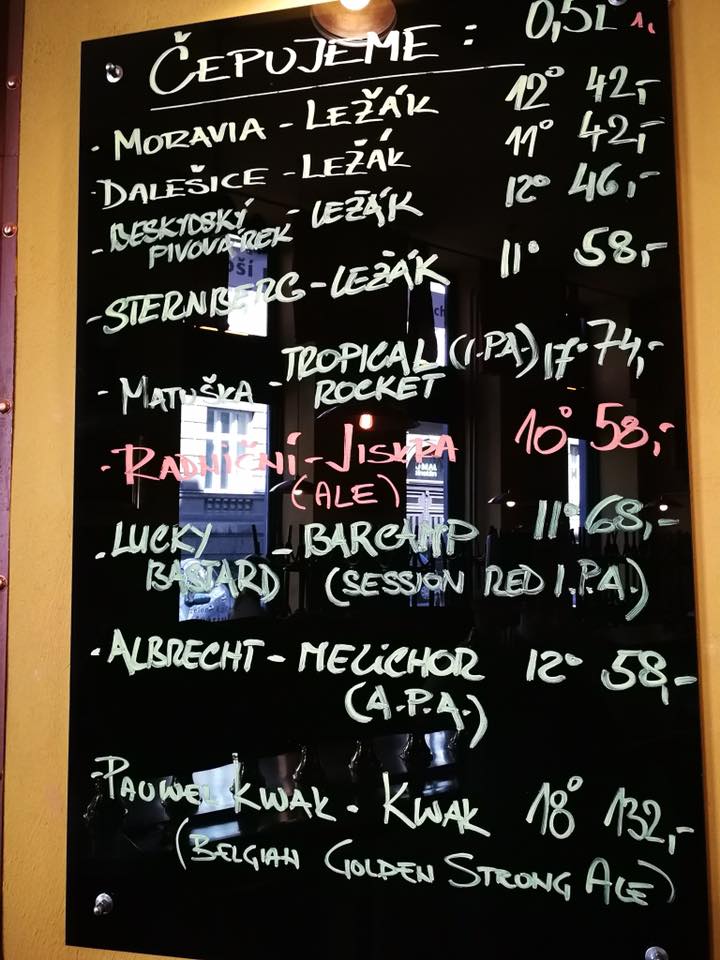 ČEPUJEME: 0,5L
• MORAVIA - LEŽÁK 12° 42,-
• DALEŠICE - LEŽÁK 11° 42,-
• BESKYDSKÝ - LEŽÁK 12° 46,-
PIVOVÁREK
• STERNBERG - LEŽÁK 11° 58,-
• MATUŠKA - TROPICAL (I.P.A.) 17° 74,-
ROCKET
• RADNIČNÍ - JISKRA 10° 58,-
(ALE)
• LUCKY - BARCAMP 11° 68,-
BASTARD (SESSION RED I.P.A.)
• ALBRECHT - MELICHOR 12° 58,-
(A.P.A.)
• PAUWEL KWAK - KWAK 18° 132,-
(BELGIAN GOLDEN STRONG ALE)